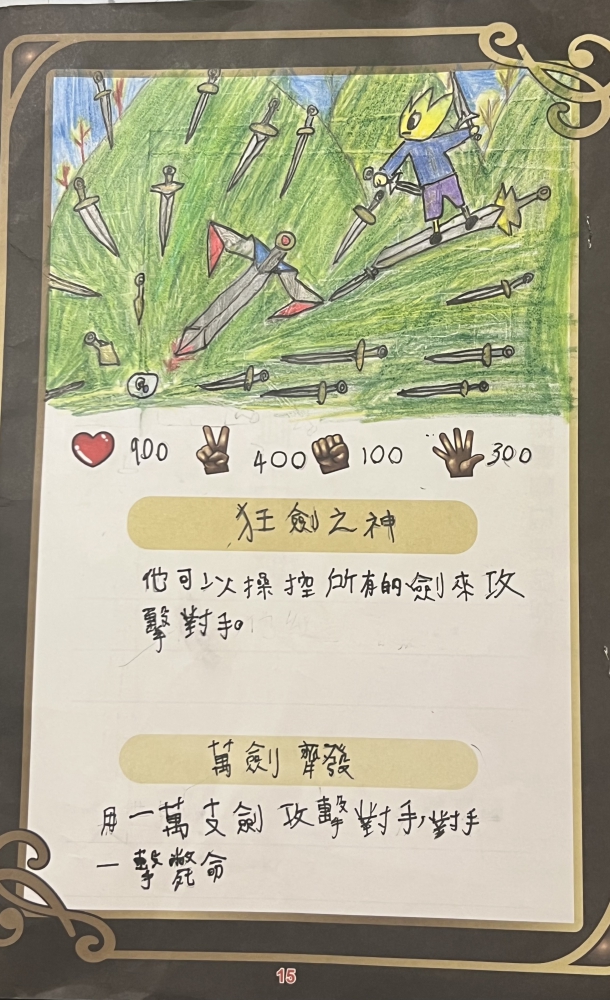 900 400 100 300
狂劍之神
他可以操控所有的劍來攻
擊對手。
萬劍齊發
用一萬支劍攻擊對手,對手
一擊斃命
15